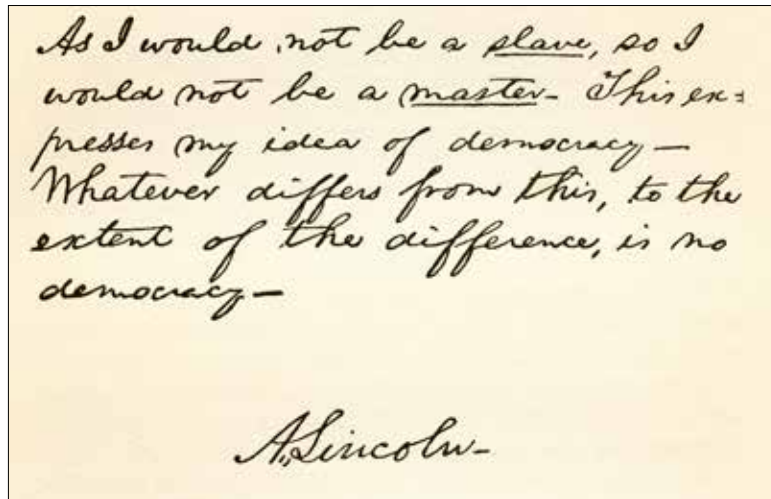 As I would not be a slave, so I
would not be a master– This ex=
presses my idea of democracy—
Whatever differs from this, to the
extent of the difference, is no
democracy—
A. Lincoln–